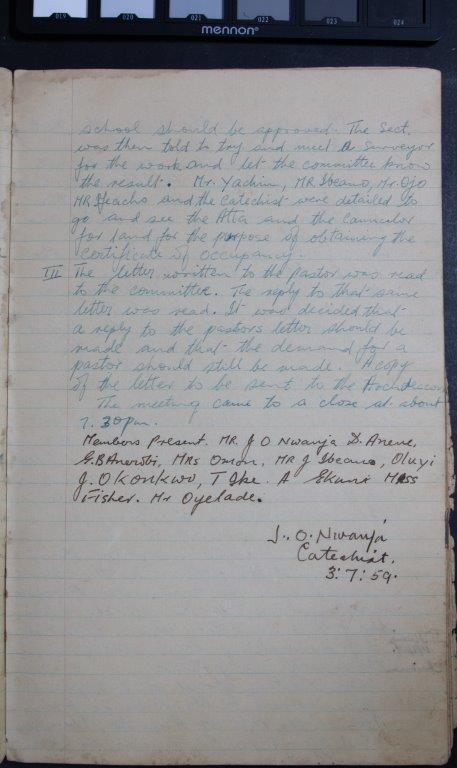 019 020 021 022 023 024
mennon
school should be approved. The Sect.
was then told to try and meet a Surveyor
for the work and let the committee know
the result. Mr. Yachim, MR. Ibeano, Mr. Ojo
MR and the Catechist were detailed to
go and see the Atta and the
for land for the purpose of obtaining the
certificate of occupancy.
III The letter written to the pastor was read
to the committee. The reply to that same
letter was read. It was decided that
a reply to the pastors letter should be
made and that the demand for a
pastor should still be made. A copy
of the letter to be sent to the Archdeacon
The meeting came to a close at about
7.30pm.
Members Present. MR. J O Nwanja D. Anene,
G.B Anerobi, MRS Omon, MR J Ibeano, Oluyi
J. OKonkwo, T Ike. A Ekani Miss
Fisher. Mr Oyelade.
J. O. Nwanja
Catechist.
3:7:59.